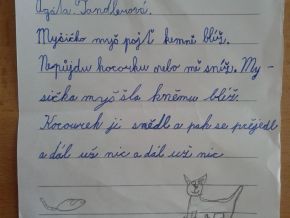 Agáta Tandlerová.
Myšičko myš pojď kemně blíž.
Nepůjdu kocourku nebo mě sníš. My-
sička myš šla kněmu blíž.
Kocourek ji snědl a pak se přejedl
a dál už nic a dál už nic